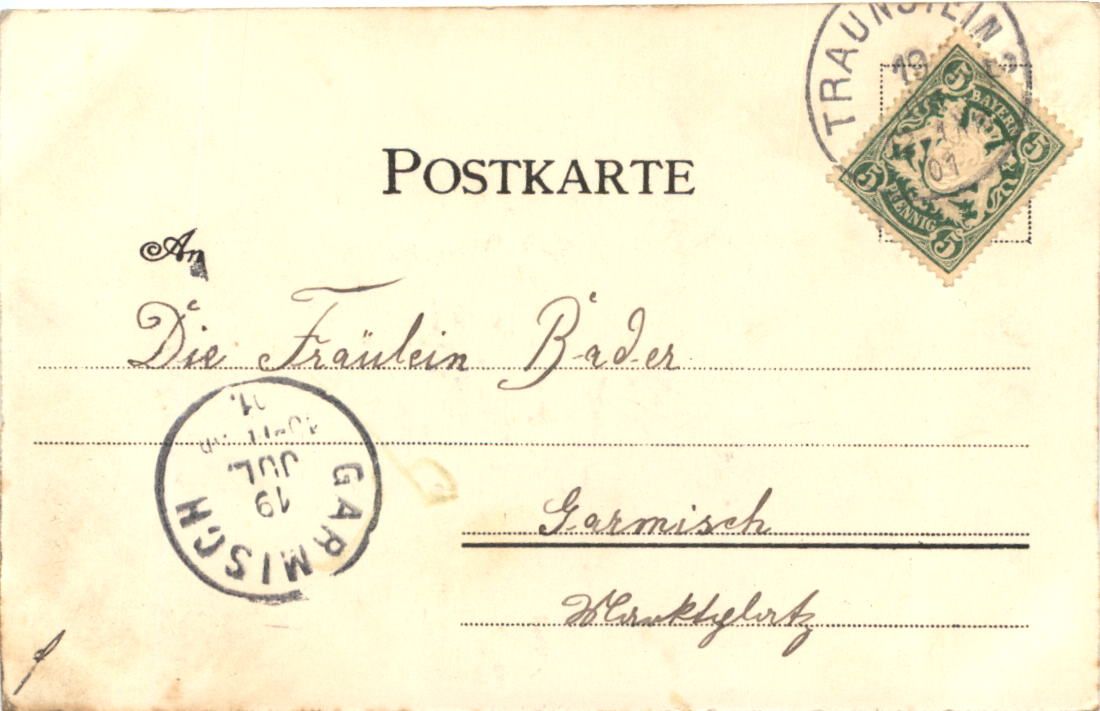 TRAUNSTEIN 2
19
01
5 5 5 5
BAYERN
PFENNIG
POSTKARTE
An
Die Fräulein Bader
GARMISCH
19
JUL.
01.
Garmisch
Marktplatz